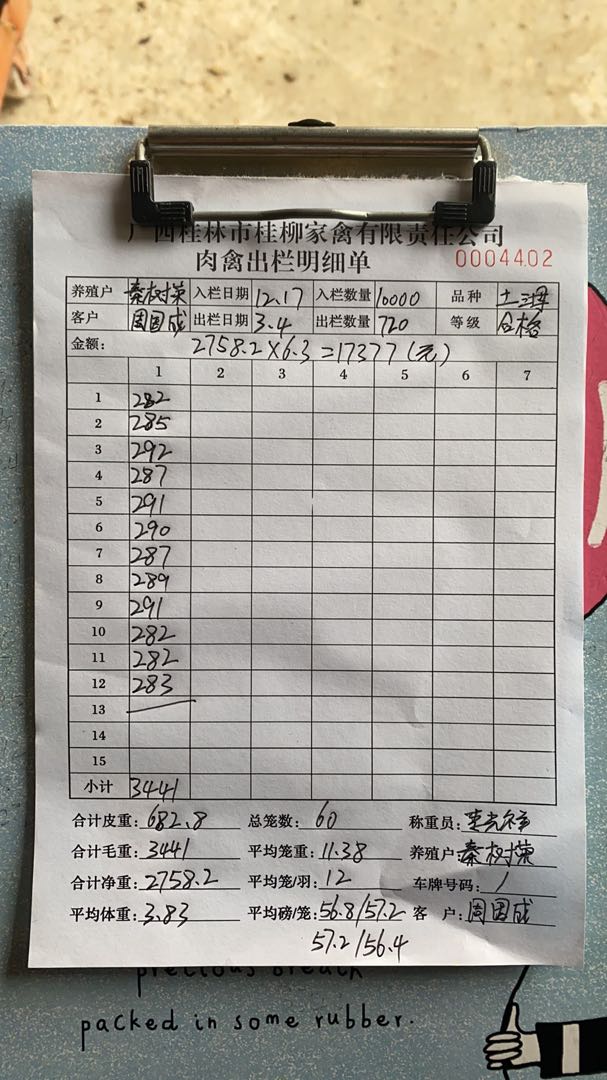 广西桂林市桂柳家禽有限责任公司
肉禽出栏明细单 0004402
养殖户 秦树荣 入栏日期 12.17 入栏数量 10000 品种 土三
客户 周国成 出栏日期 3.4 出栏数量 720 等级 合格
金额: 2758.2×6.3=17377(元)
1 2 3 4 5 6 7
1 282
2 285
3 292
4 287
5 291
6 290
7 287
8 289
9 291
10 282
11 282
12 283
13
14
15
小计 3441
合计皮重: 682.8 总笼数: 60 称重员:
合计毛重: 3441 平均笼重: 11.38 养殖户: 秦树荣
合计净重: 2758.2 平均笼/羽: 12 车牌号码: /
平均体重: 3.83 平均磅/笼: 56.8/57.2 客 户: 周国成
57.2/56.4
precious breath
packed in some rubber.